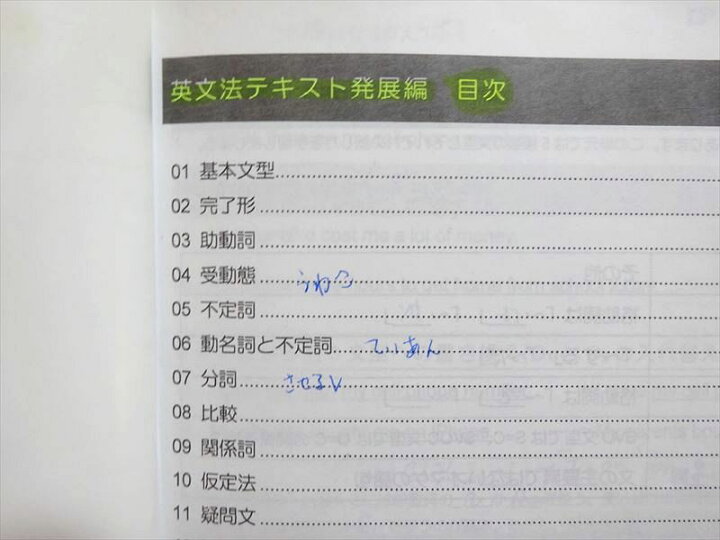 英文法テキスト発展編 目次
01 基本文型
02 完了形
03 助動詞
04 受動態
05 不定詞
06 動名詞と不定詞 ていあん
07 分詞 させるV
08 比較
09 関係詞
10 仮定法
11 疑問文